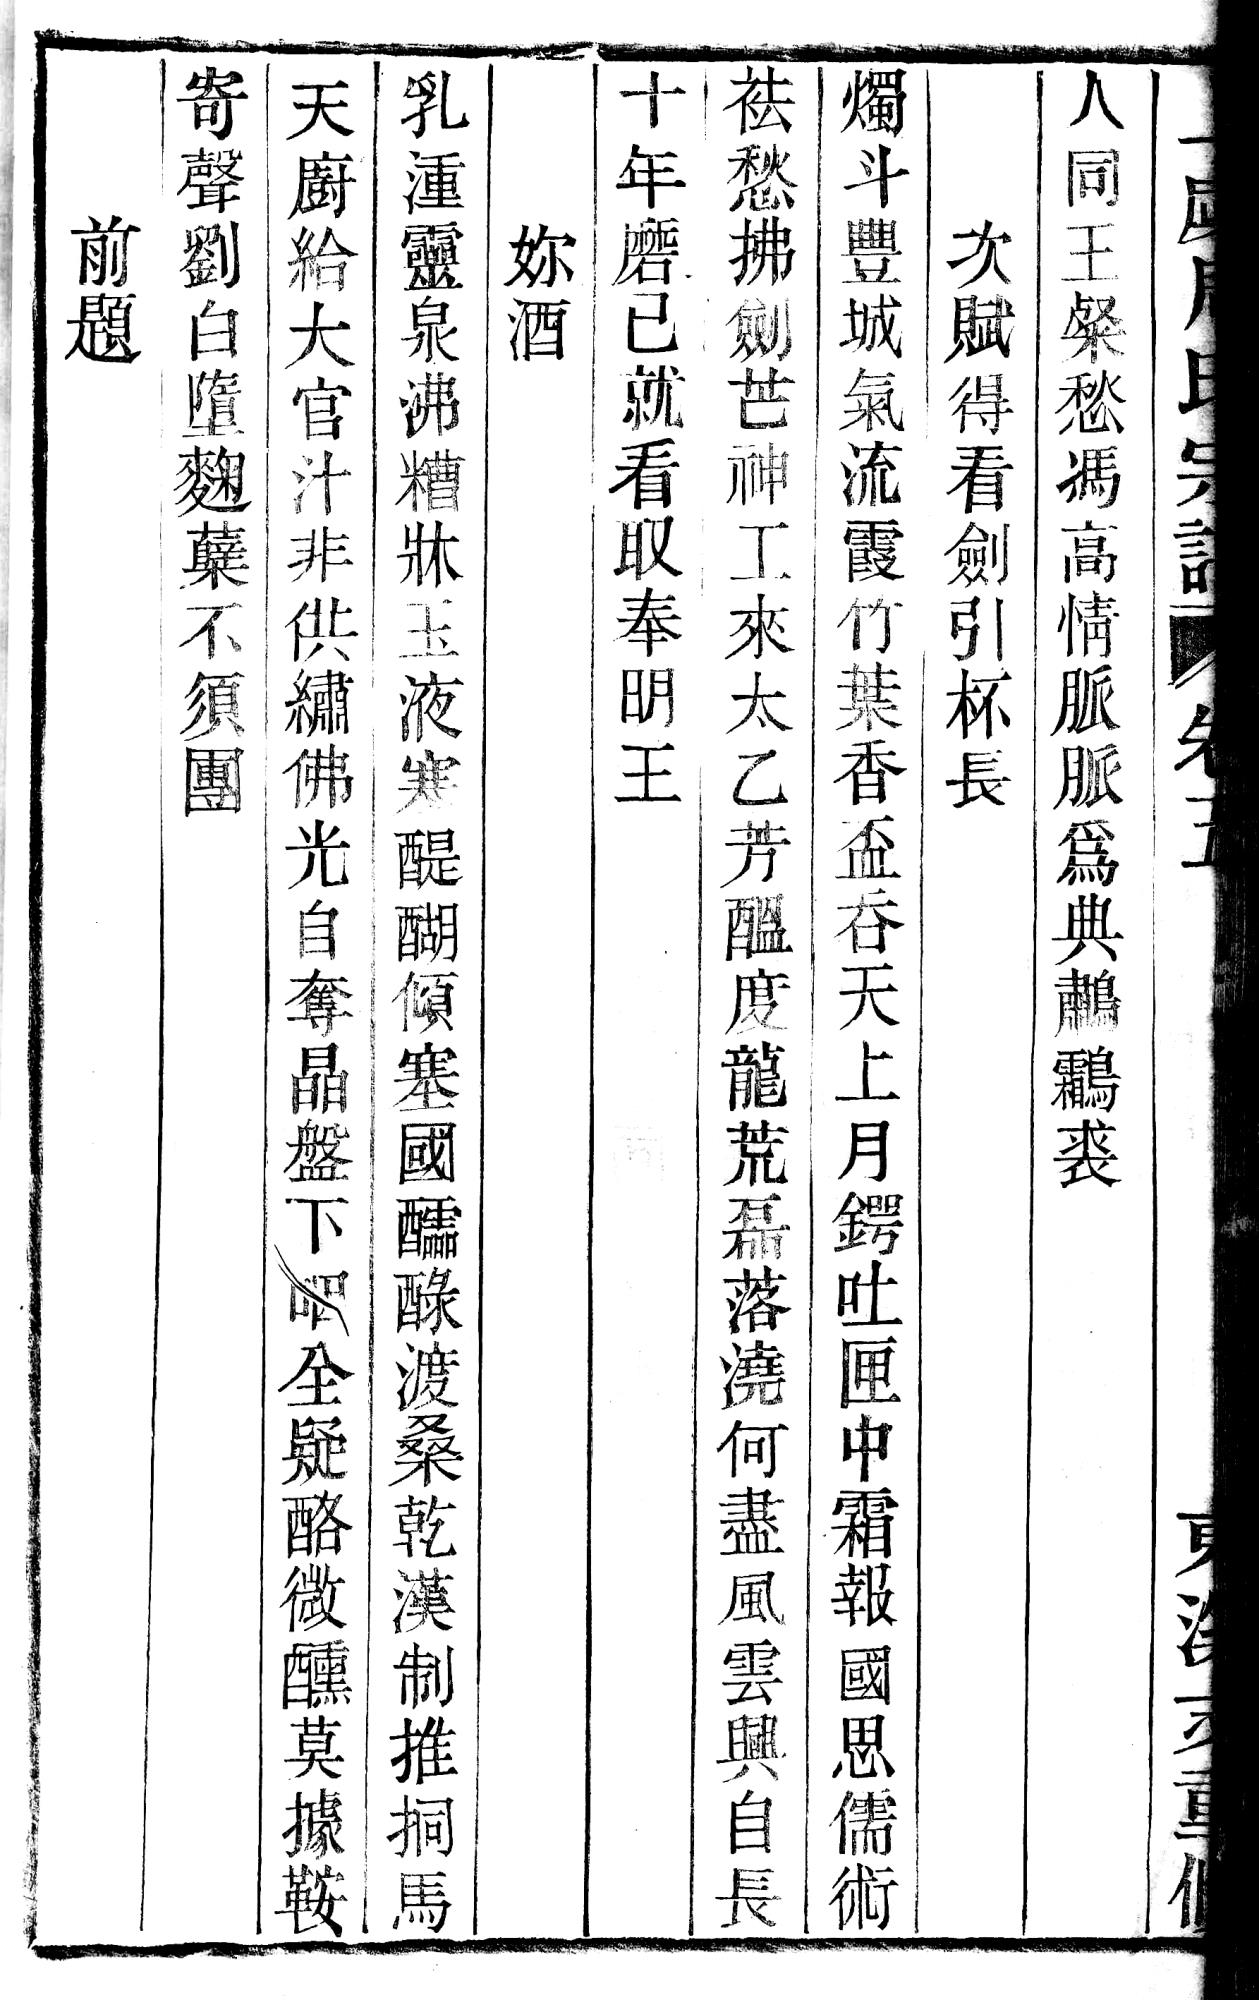 氏宗譜 卷五
人同王粲愁馮高情脈脈爲典鷫鸘裘
次賦得看劍引杯長
燭斗豐城氣流霞竹葉香盃吞天上月鍔吐匣中霜報國思儒術
祛愁拂劍芒神工來太乙芳醞度龍荒磊落澆何盡風雲興自長
十年磨已就看取奉明王
妳酒
乳湩靈泉沸糟牀玉液寒醍醐傾塞國醹醁渡桑乾漢制推挏馬
天廚給大官汁非供繡佛光自奪晶盤下咽全疑酪微醺莫據鞍
寄聲劉白墮麴蘖不須團
前題